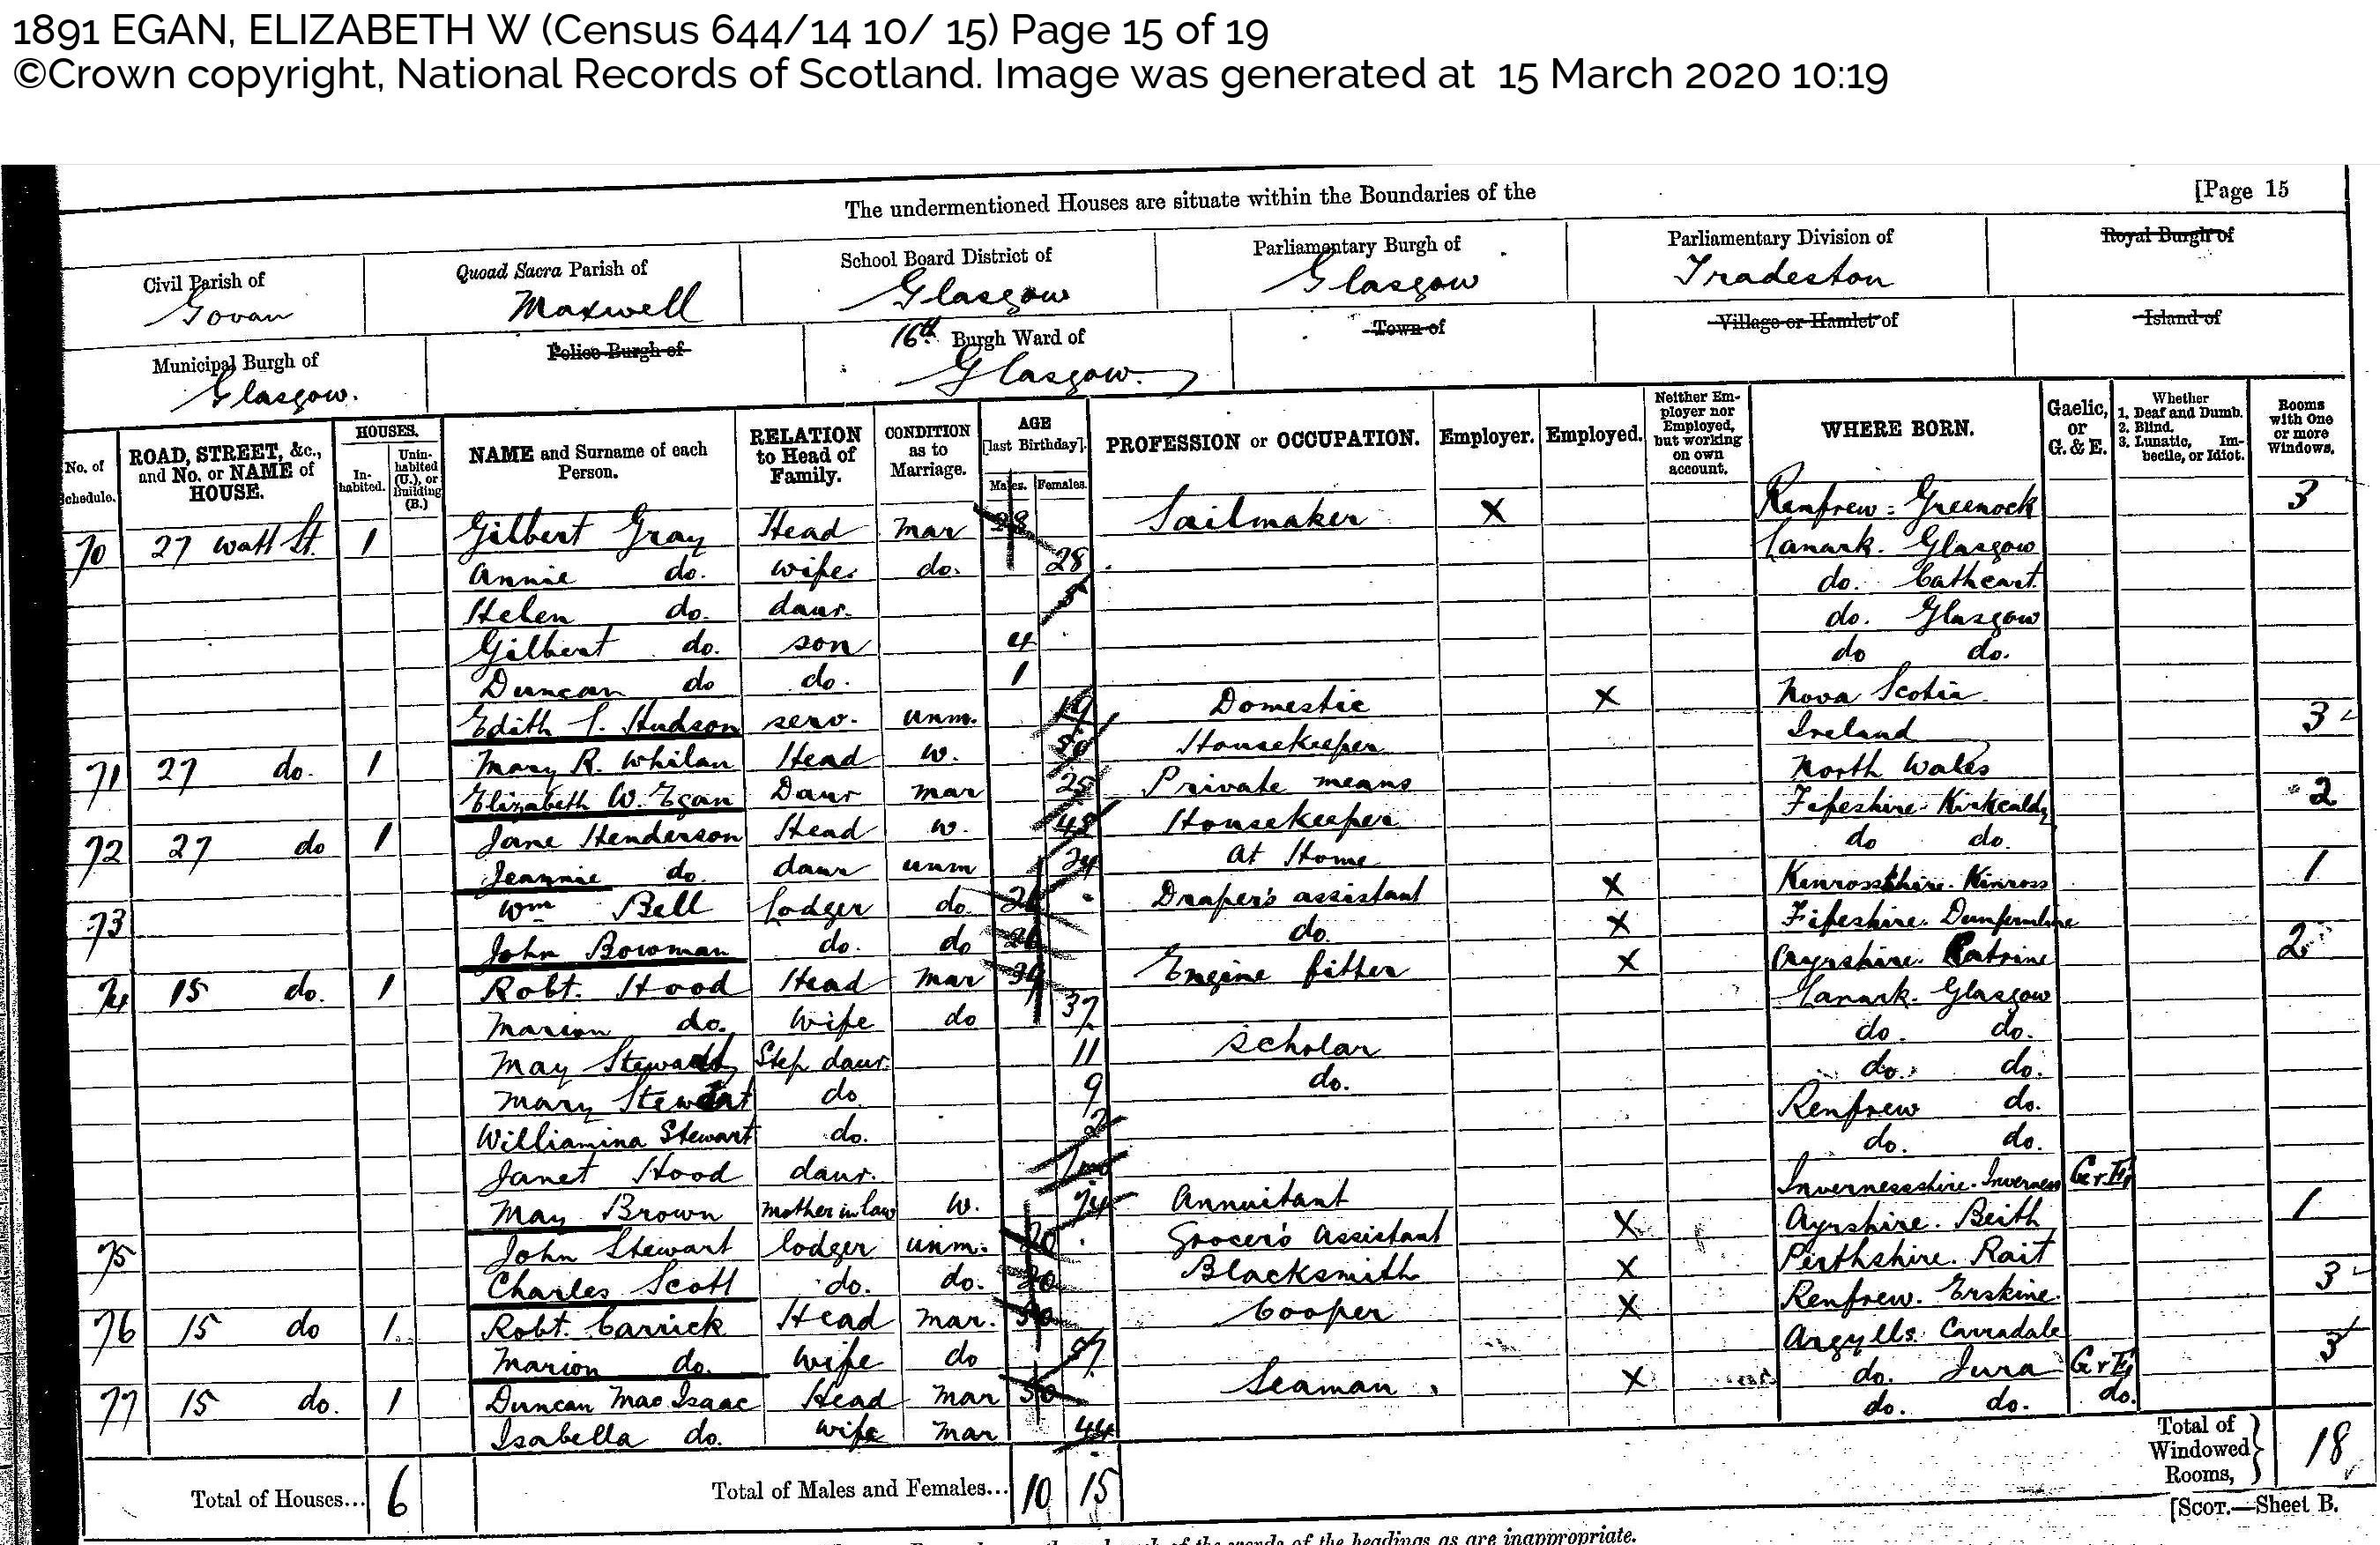 1891 EGAN, ELIZABETH W (Census 644/14 10/ 15) Page 15 of 19
©Crown copyright, National Records of Scotland. Image was generated at 15 March 2020 10:19
The undermentioned Houses are situate within the Boundaries of the [Page 15
Civil Parish of Quoad Sacra Parish of School Board District of Parliamentary Burgh of Parliamentary Division of Royal Burgh of
Govan Maxwell Glasgow Glasgow Tradeston
Municipal Burgh of Police Burgh of 16th Burgh Ward of Town of Village or Hamlet of Island of
Glasgow. Glasgow.
No. of Schedule. ROAD, STREET, &c., and No. or NAME of HOUSE. HOUSES. Inhabited. Uninhabited (U.), or Building (B.) NAME and Surname of each Person. RELATION to Head of Family. CONDITION as to Marriage. AGE [last Birthday]. Males. Females. PROFESSION or OCCUPATION. Employer. Employed. Neither Employer nor Employed, but working on own account. WHERE BORN. Gaelic, or G. & E. Whether 1. Deaf and Dumb. 2. Blind. 3. Lunatic, Imbecile, or Idiot. Rooms with One or more Windows.
70 27 Watt St. 1 Gilbert Gray Head Mar 28 Sailmaker X Renfrew = Greenock 3
Annie do. Wife. do. 28 Lanark. Glasgow
Helen do. daur. 5 do. Cathcart.
Gilbert do. son 4 do. Glasgow
Duncan do do. 1 do do.
Edith Hudson serv. unm. 19 Domestic X Nova Scotia
71 27 do. 1 Mary R. Whilan Head W. 50 Housekeeper Ireland 3
Elizabeth W. Egan Daur Mar 25 Private means North Wales
72 27 do 1 Jane Henderson Head W. 48 Housekeeper Fifeshire. Kirkcaldy 2
Jeannie do. daur unm 24 At Home do do.
73 Wm Bell Lodger do. Draper's assistant X Kinrossshire. Kinross 1
John Bowman do. do do. X Fifeshire. Dunfermline
74 15 do. 1 Robt. Hood Head Mar 39 Engine fitter X Ayrshire. Catrine 2
Marion do. Wife do 37 Lanark. Glasgow
May Stewart Step daur. 11 Scholar do. do.
Mary Stewart do. 9 do. do. do.
Williamina Stewart do. 2 Renfrew do.
Janet Hood daur. 1 mo do. do.
May Brown Mother in law W. 74 Annuitant Invernessshire. Inverness G & E
75 John Stewart lodger unm. 20 Grocer's Assistant X Ayrshire. Beith 1
Charles Scott do. do. 20 Blacksmith X Perthshire. Rait
76 15 do 1 Robt. Carrick Head Mar. 50 Cooper X Renfrew. Erskine. 3
Marion do. Wife do 57 Argylls. Carradale
77 15 do. 1 Duncan MacIsaac Head Mar 50 Seaman X do. Jura G & E 3
Isabella do. Wife Mar 44 do. do. do.
Total of Houses... 6 Total of Males and Females... 10 15 Total of Windowed Rooms, 18
[SCOT.—Sheet B.
of the words of the headings as are inappropriate.